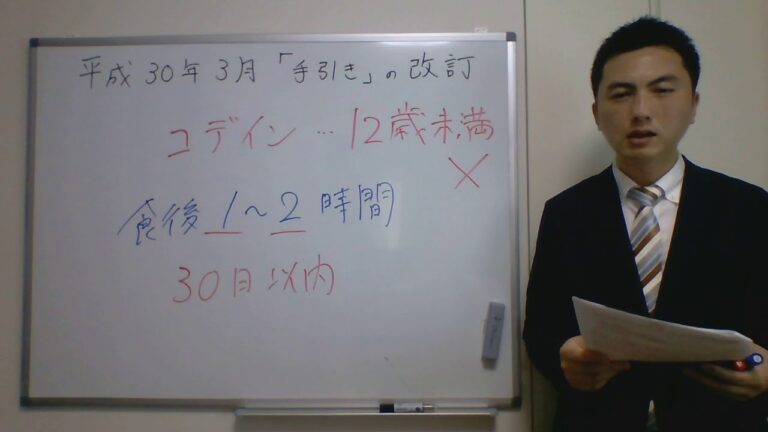 平成30年3月「手引き」の改訂
コデイン…12歳未満
×
食後1～2時間
30日以内